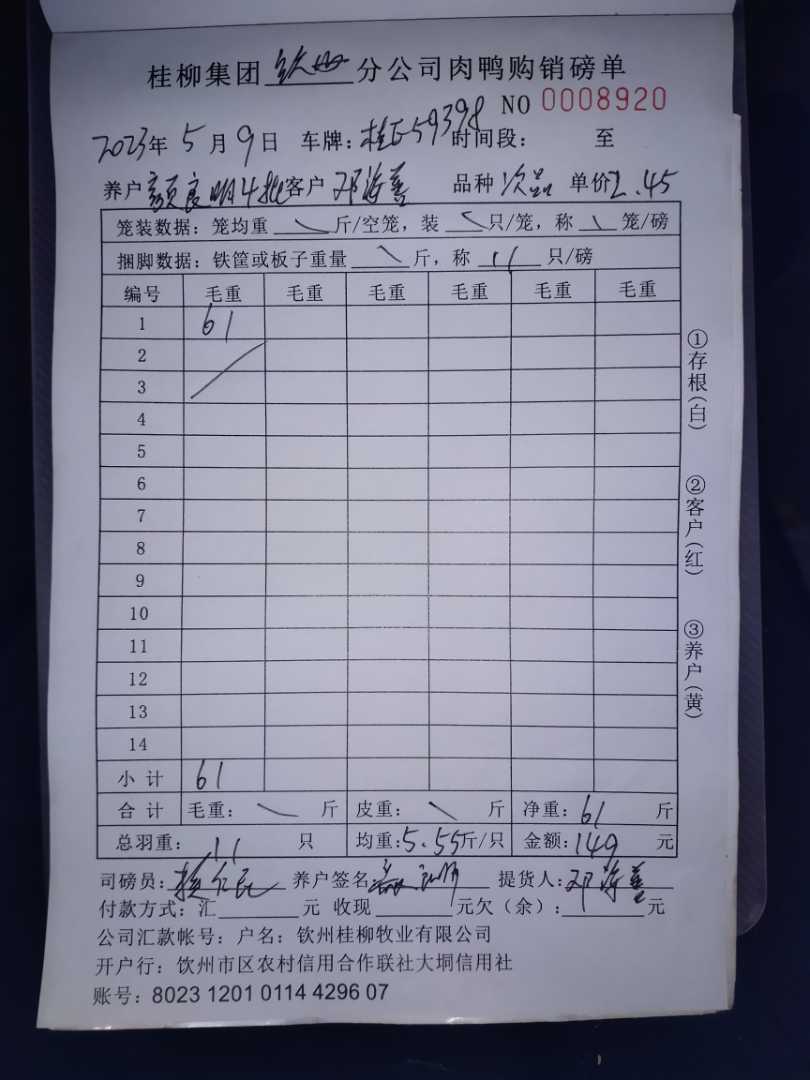 桂柳集团钦州分公司肉鸭购销磅单
NO 0008920
2023年5月9日 车牌:桂E59398 时间段: 至
养户颜良明4批客户邓海善 品种次品 单价2.45
笼装数据:笼均重 斤/空笼,装 只/笼,称 笼/磅
捆脚数据:铁筐或板子重量 斤,称 11 只/磅
编号 毛重 毛重 毛重 毛重 毛重 毛重
1 61
2
3
4
5
6
7
8
9
10
11
12
13
14
小计 61
合计 毛重: 斤 皮重: 斤 净重:61 斤
总羽重: 11 只 均重:5.55斤/只 金额:149 元
司磅员: 养户签名 提货人:邓海善
付款方式:汇 元 收现 元欠(余): 元
公司汇款帐号:户名:钦州桂柳牧业有限公司
开户行:钦州市区农村信用合作联社大垌信用社
账号:8023 1201 0114 4296 07
①存根(白)
②客户(红)
③养户(黄)